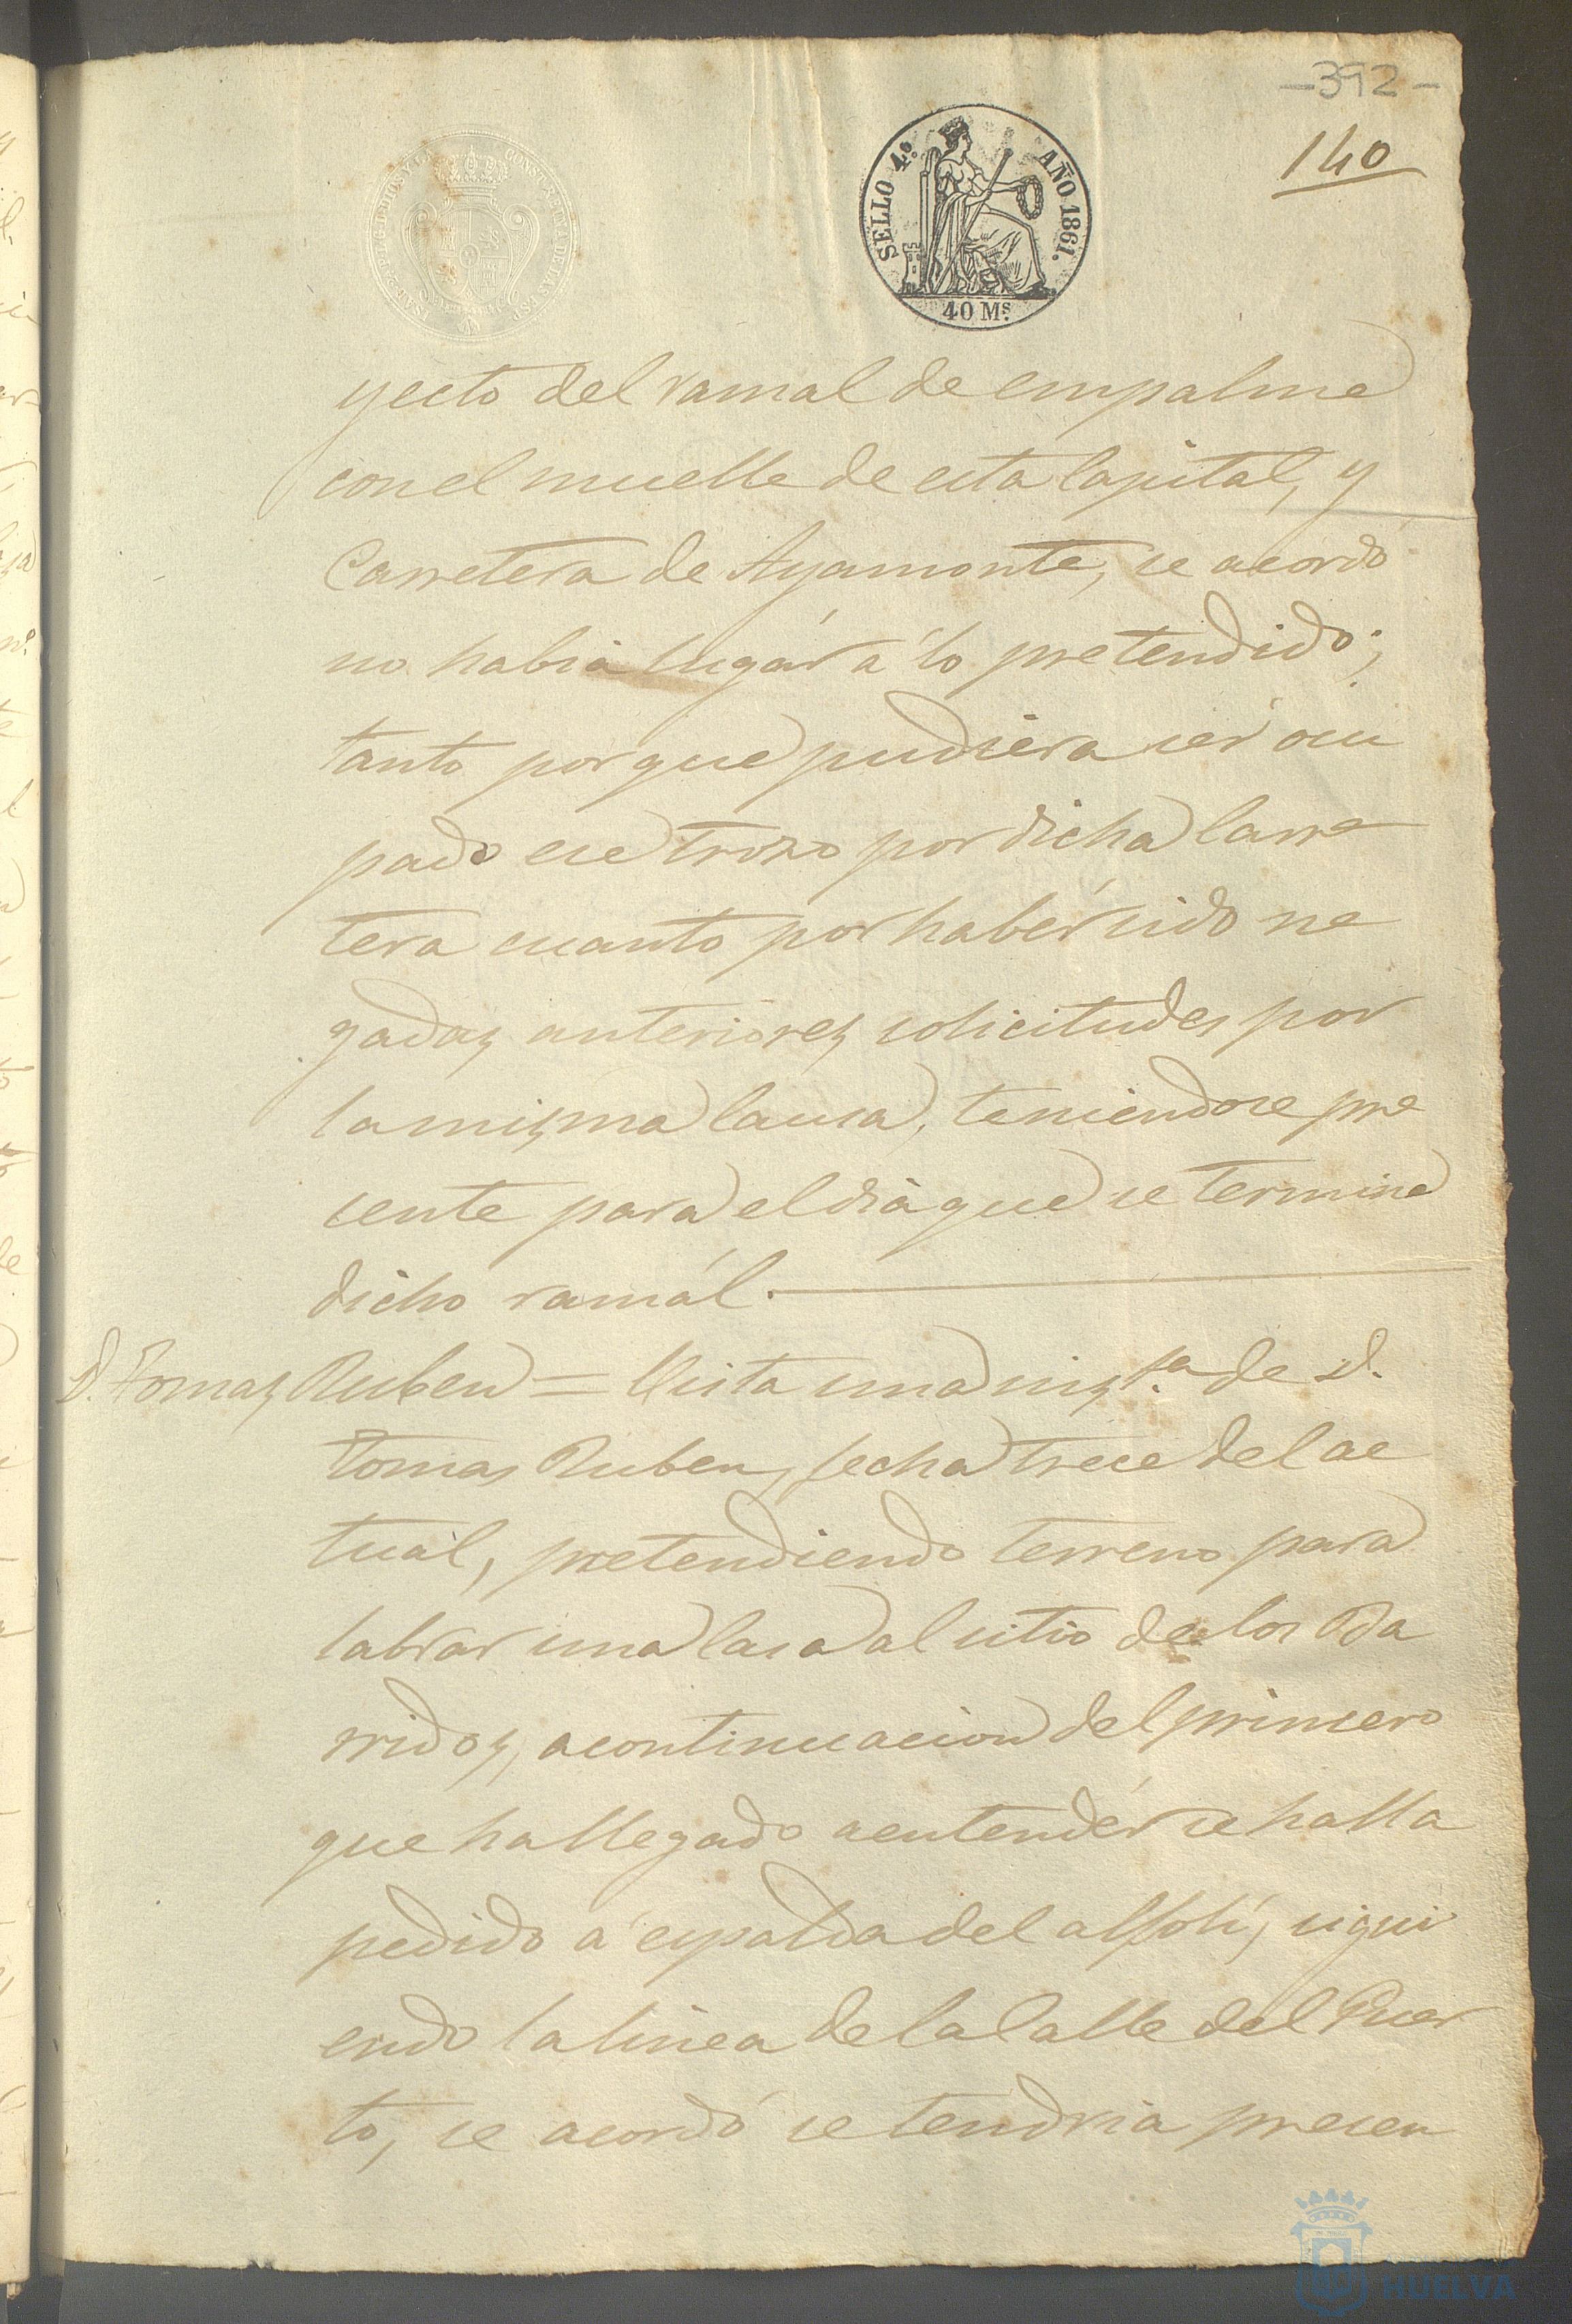 -392-
140
SELLO 4º. AÑO 1861.
40 Ms.
yecto del ramal de empalme
con el muelle de esta Capital, y
Carretera de Ayamonte, se acordó
no habia lugar á lo pretendido;
tanto porque pudiera sér ocu
pado ese trozo por dicha Carre
tera cuanto por habér sido ne
gadas anteriores solicitudes por
la misma Causa, teniendose pre
sente para el dia que se termine
dicho ramál.
D. Tomas Ruben = Vista una insta. de D.
Tomas Ruben, fecha trece del ac
tuál, pretendiendo terreno para
labrar una Casa al sitio de los Ba
rridos, a continuacion del primero
que ha llegado a entendér se halla
pedido á espalda del alfolí, sigui
endo la linea de la Calle del Puer
to, se acordó se tendria presen
HUELVA